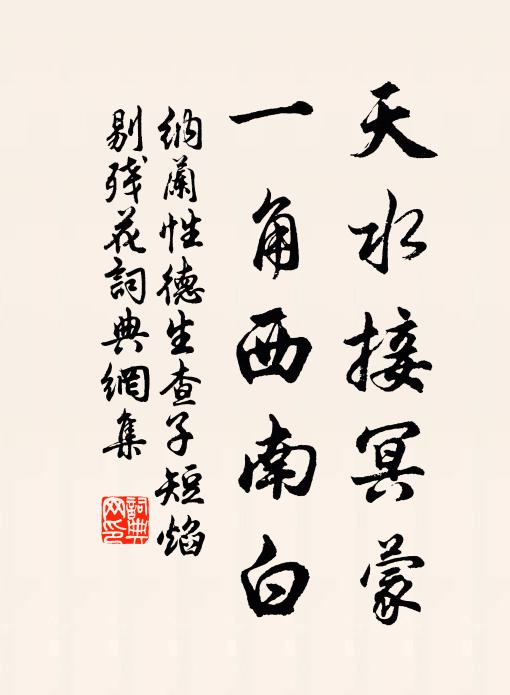 天水接冥蒙
一角西南白
纳兰性德生查子短焰
剔残花詞典網集
詞典
网印